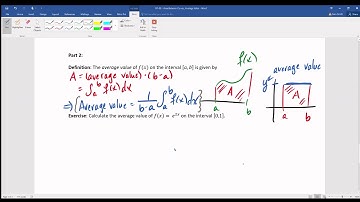 Part 2:
Definition: The average value of f(x) on the interval [a, b] is given by
A = (average value) · (b-a)
= ∫ₐᵇ f(x)dx
⇒ {Average value = 1/(b-a) ∫ₐᵇ f(x)dx}
Exercise: Calculate the average value of f(x) = e²ˣ on the interval [0,1].
f(x)
A
a b
average value
y*
A
a b